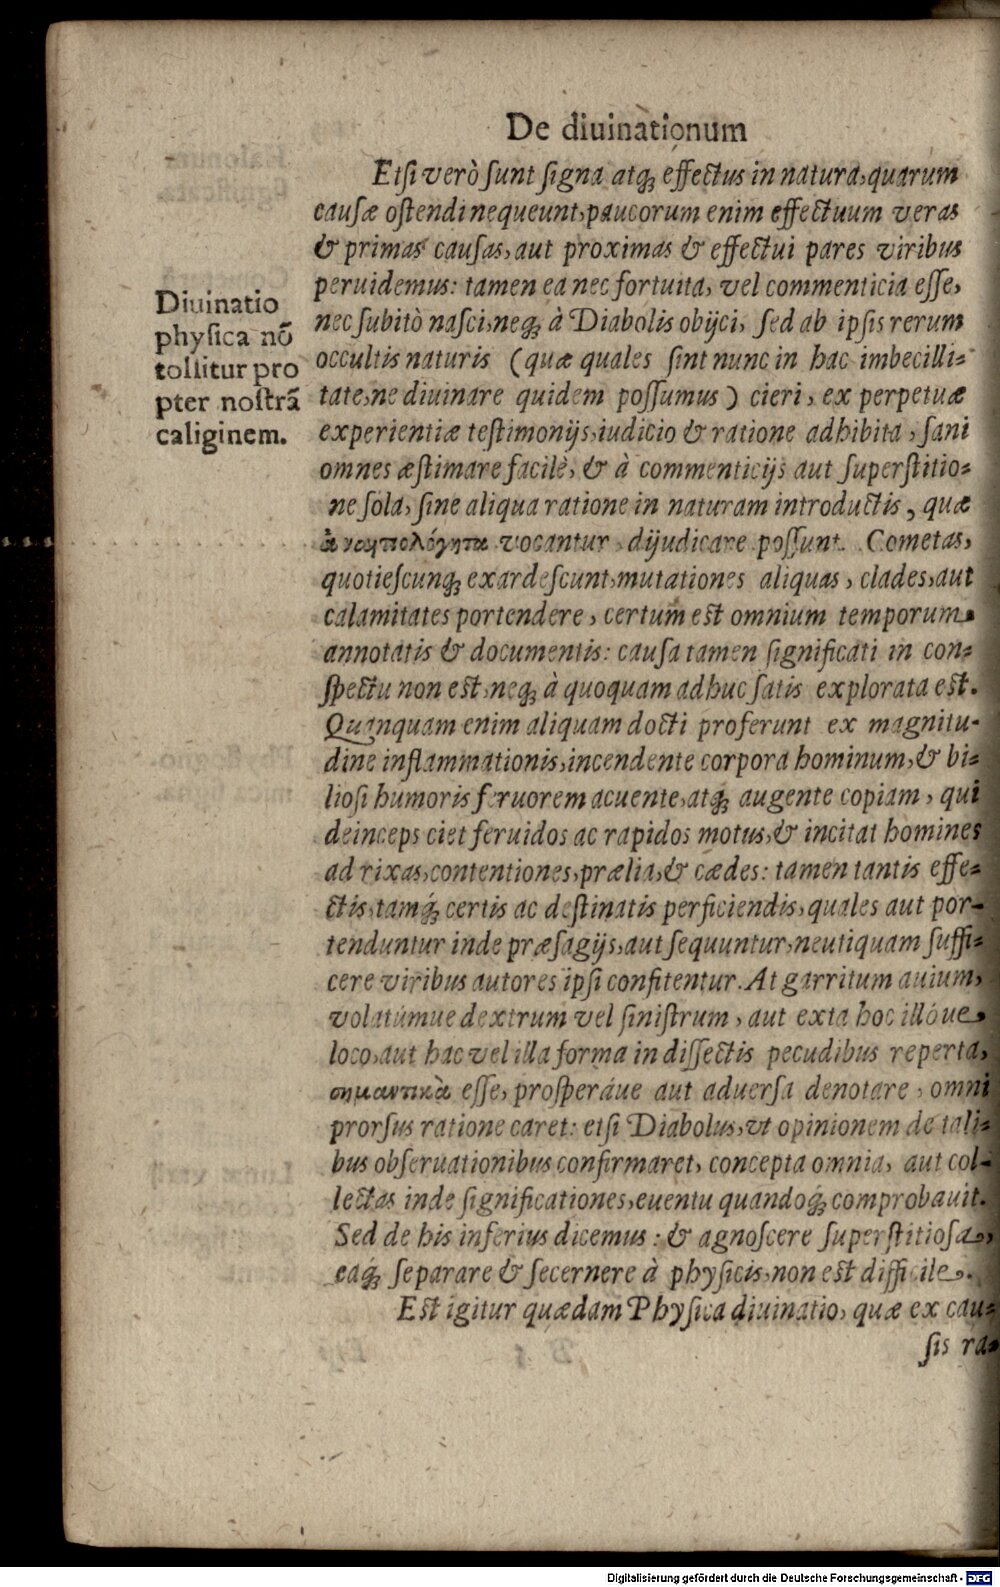 De diuinationum
Etſi verò ſunt ſigna atq́; effectus in natura, quarum
cauſæ oſtendi nequeunt, paucorum enim effectuum veras
& primas cauſas, aut proximas & effectui pares viribus
peruidemus: tamen ea nec fortuita, vel commenticia eſſe,
nec ſubitò naſci, neq́; à Diabolis obijci, ſed ab ipſis rerum
occultis naturis (quæ quales ſint nunc in hac imbecilli-
tate, ne diuinare quidem poſſumus) cieri, ex perpetuæ
experientiæ teſtimonijs, iudicio & ratione adhibita, ſani
omnes æſtimare facilè, & à commenticijs aut ſuperſtitio-
ne ſola, ſine aliqua ratione in naturam introductis, quæ
vocantur dijudicare poſſunt. Cometas,
quotieſcunq́; exardeſcunt, mutationes aliquas, clades, aut
calamitates portendere, certum est omnium temporum
annotatis & documentis: cauſa tamen ſignificati in con-
ſpectu non est, neq́; à quoquam adhuc ſatis explorata est.
Quanquam enim aliquam docti proferunt ex magnitu-
dine inflammationis, incendente corpora hominum, & bi-
lioſi humoris feruorem acuente, atq́; augente copiam, qui
deinceps ciet feruidos ac rapidos motus, & incitat homines
ad rixas, contentiones, prælia, & cædes: tamen tantis effe-
ctis, tamq́; certis ac deſtinatis perficiendis, quales aut por-
tenduntur inde præſagijs, aut ſequuntur, neutiquam ſuffi-
cere viribus autores ipſi confitentur. At garritum auium,
volatúmue dextrum vel ſiniſtrum, aut exta hoc illóue
loco, aut hac vel illa forma in diſſectis pecudibus reperta,
σημαντικὰ eſſe, proſperáue aut aduerſa denotare, omni
prorſus ratione caret: etſi Diabolus, vt opinionem de tali-
bus obſeruationibus confirmaret, concepta omnia, aut col-
lectas inde ſignificationes, euentu quandoq́; comprobauit.
Sed de his inferius dicemus: & agnoſcere ſuperſtitioſa,
eaq́; ſeparare & ſecernere à phyſicis, non est difficile.
Est igitur quædam Phyſica diuinatio, quæ ex cau-
ſis ra-
Diuinatio
phyſica nō
tollitur pro
pter noſtrā
caliginem.
Digitalisierung gefördert durch die Deutsche Forschungsgemeinschaft - DFG